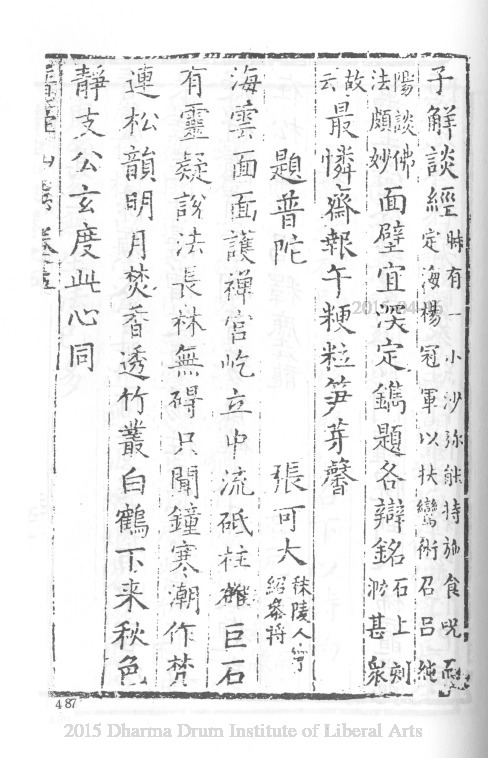 子觧談經時有一小沙弥能持施食呪而定海楊冠軍以扶鸞術召呂純
陽談佛法頗妙面壁宜深定鐫題各辯銘石上刻泐甚衆
故云最憐齋報午粳粒笋芽馨
題普陀 張可大秣陵人寧紹叅将
海雲面面護禪宫屹立中流砥柱雄巨石
有靈疑說法長林無碍只聞鐘寒潮作梵
連松韻明月焚香透竹叢白鶴下来秋色
靜支公玄度此心同
487
2015 Dharma Drum Institute of Liberal Arts